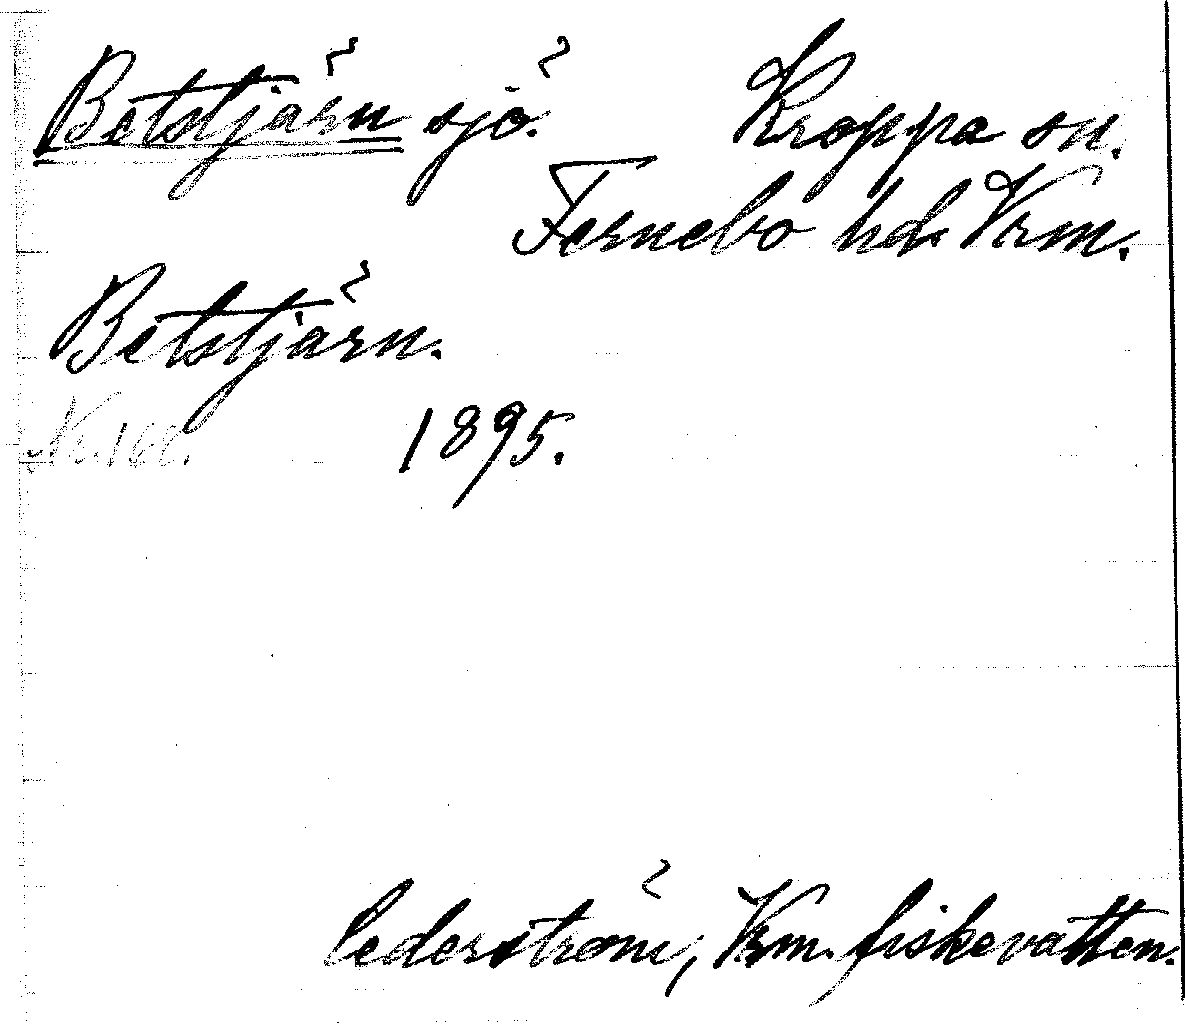 Betstjärn sjö. Kroppa sn.
Fernebo hd. Vrm.
Betstjärn.
Nr. 1895.
Cederström, Vrm. fiskevatten.